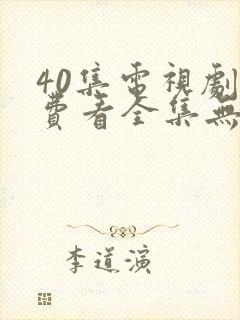 40集電視劇
費看全集無
李道演